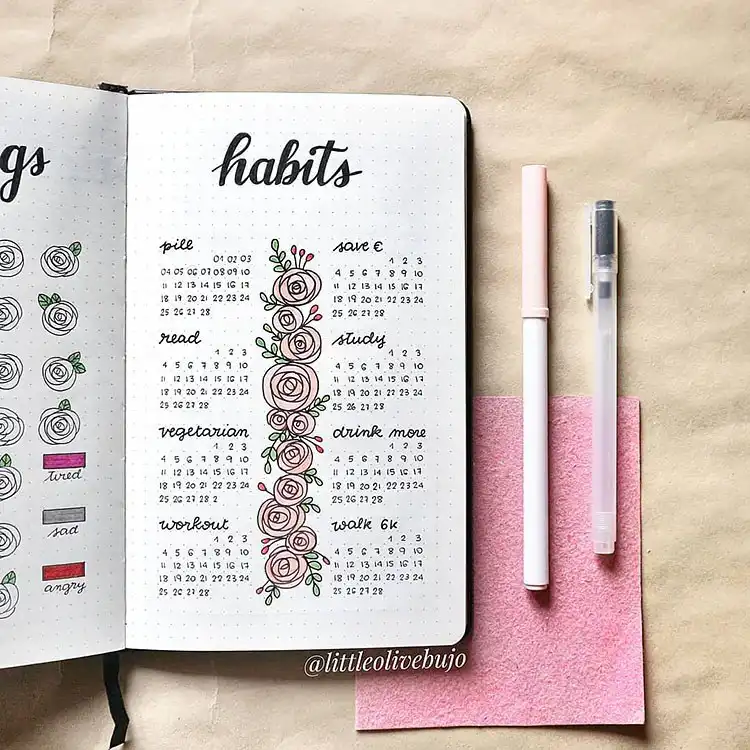 gs
tired
sad
angry
habits
pill
01 02 03
04 05 06 07 08 09 10
11 12 13 14 15 16 17
18 19 20 21 22 23 24
25 26 27 28
read
1 2 3
4 5 6 7 8 9 10
11 12 13 14 15 16 17
18 19 20 21 22 23 24
25 26 27 28
vegetarian
1 2 3
4 5 6 7 8 9 10
11 12 13 14 15 16 17
18 19 20 21 22 23 24
25 26 27 28 2
workout
1 2 3
4 5 6 7 8 9 10
11 12 13 14 15 16 17
18 19 20 21 22 23 24
25 26 27 28
save €
1 2 3
4 5 6 7 8 9 10
11 12 13 14 15 16 17
18 19 20 21 22 23 24
25 26 27 28
study
1 2 3
4 5 6 7 8 9 10
11 12 13 14 15 16 17
18 19 20 21 22 23 24
25 26 27 28
drink more
1 2 3
4 5 6 7 8 9 10
11 12 13 14 15 16 17
18 19 20 21 22 23 24
25 26 27 28
walk 6k
1 2 3
4 5 6 7 8 9 10
11 12 13 14 15 16 17
18 19 20 21 22 23 24
25 26 27 28
@littleolivebujo